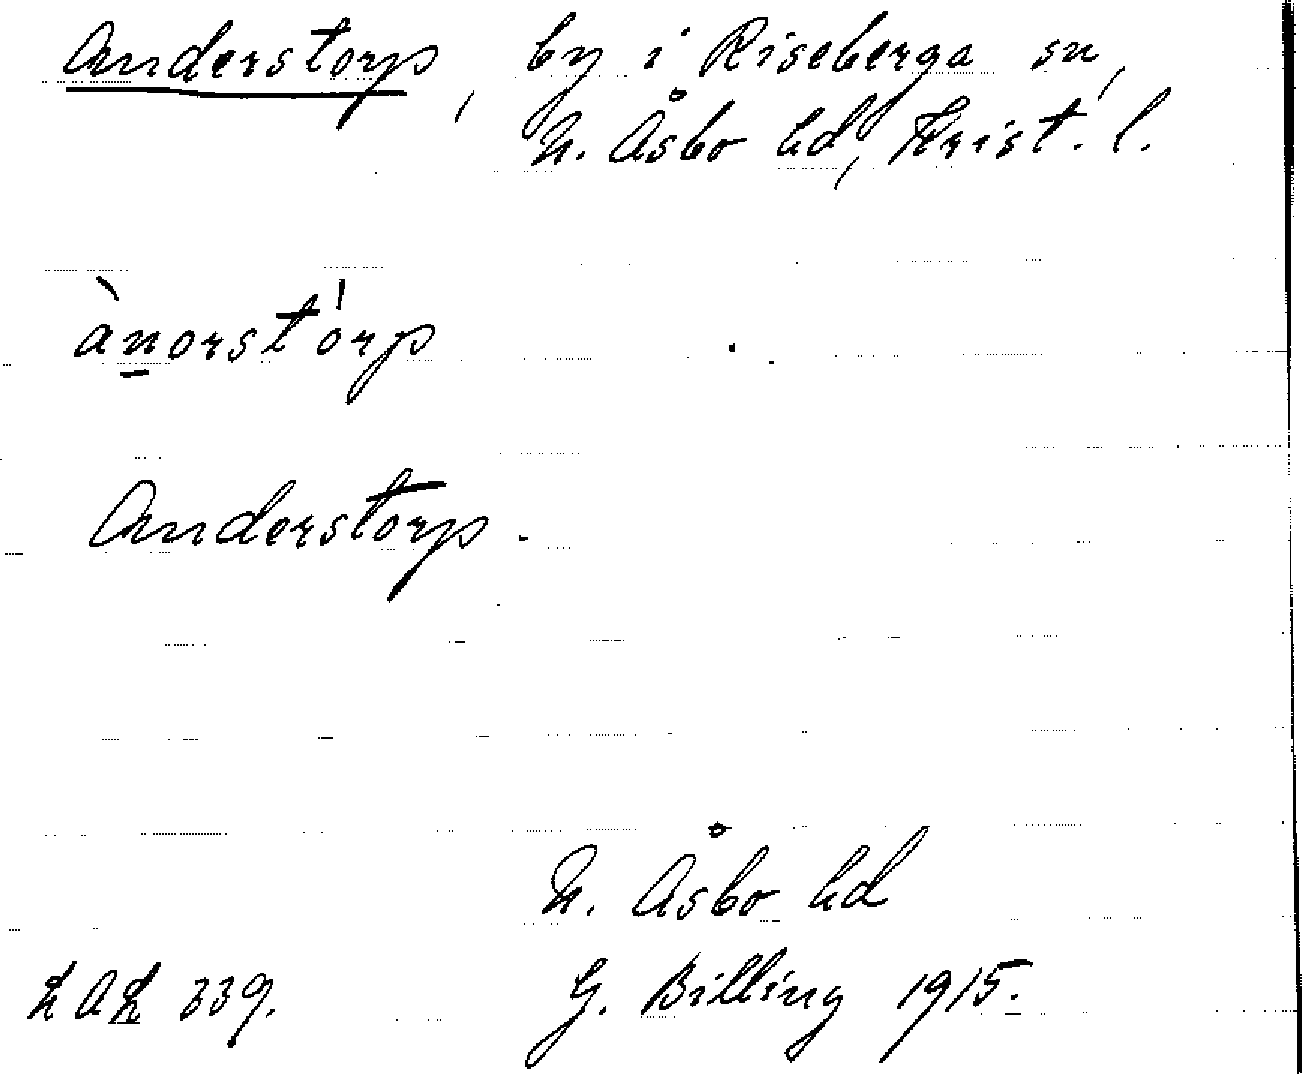 Anderstorp, by i Riseberga sn,
N. Åsbo hd, Krist. l.
ànorstó̍rp
Anderstorp.
N. Åsbo hd
339. G. Billing 1915.